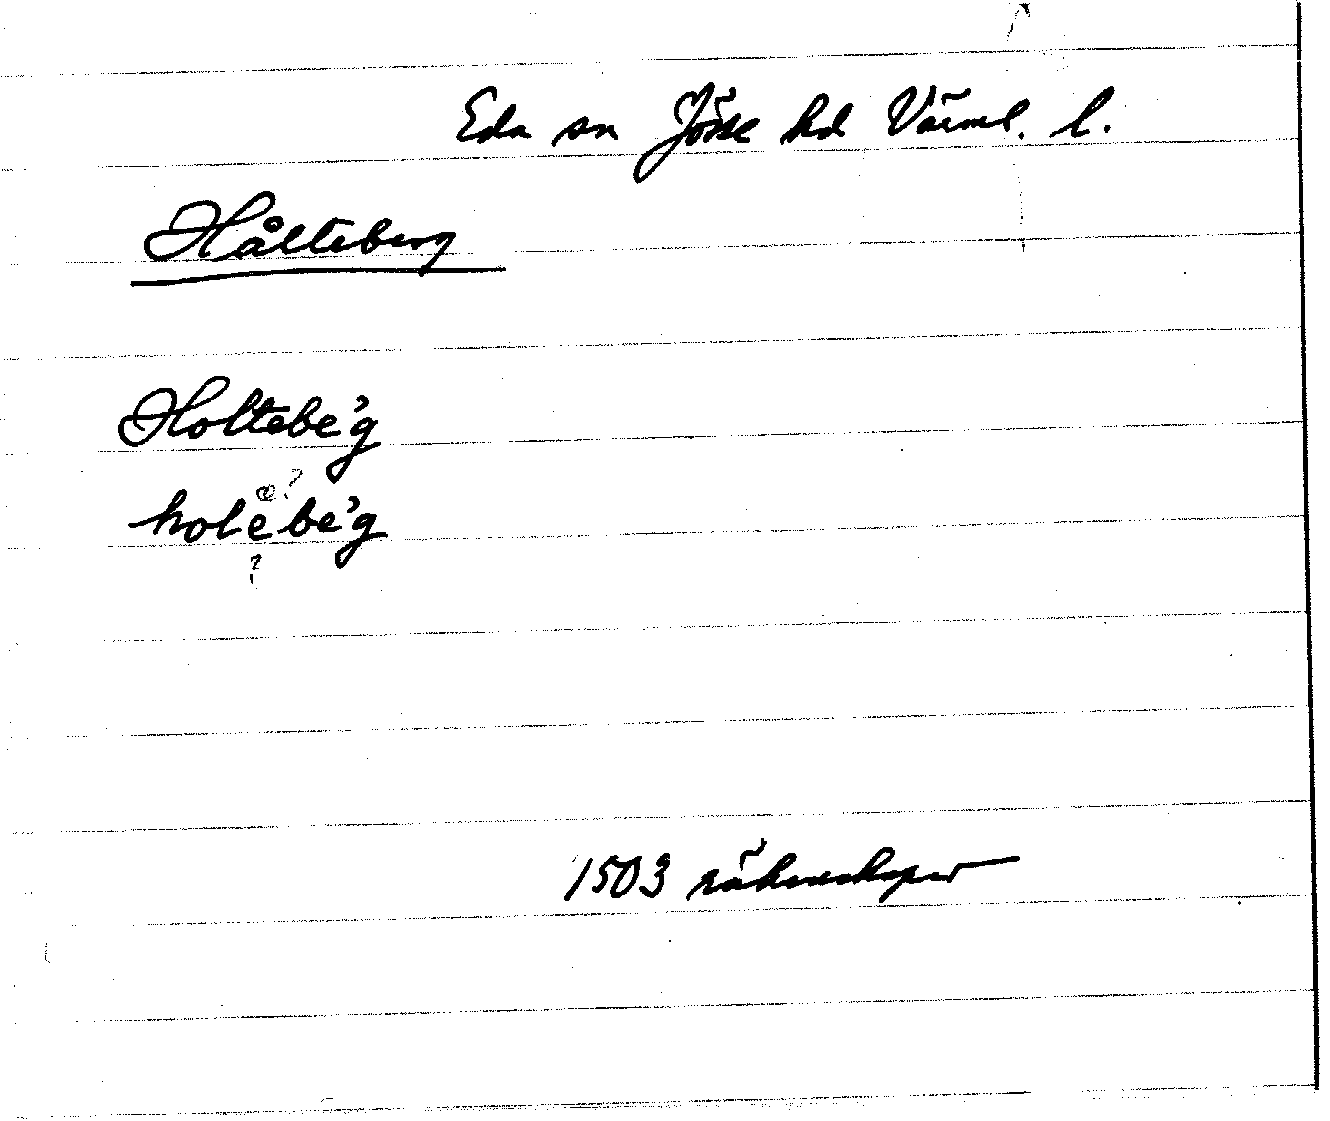 Eda sn Jösse hd Värml. l.
Hålteberg
Holtebe'g
e?
holebe'g
?
1503 räkenskaper